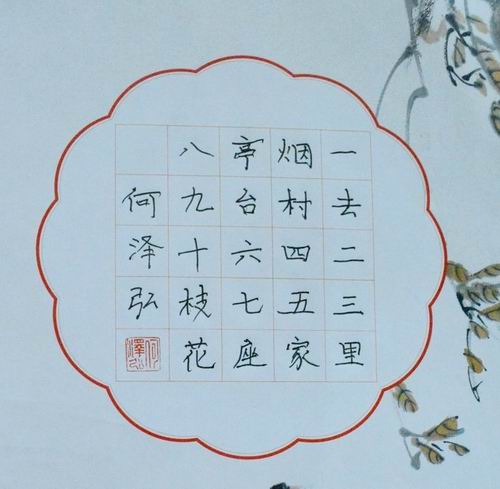 一去二三里
烟村四五家
亭台六七座
八九十枝花
何泽弘
何澤弘